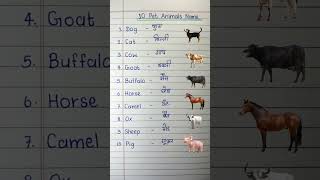 10 Pet Animals Name
1. Dog - कुत्ता
2. Cat - बिल्ली
3. Cow - गाय
4. Goat - बकरी
5. Buffalo - भैंस
6. Horse -
7. Camel - ऊँट
8. Ox - बैल
9. Sheep - भेड़
10. Pig -
4. Goat
5. Buffalo
6. Horse
7. Camel
8. Ox